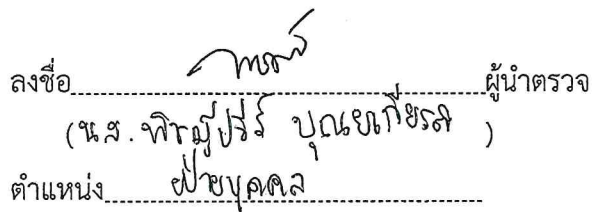 ลงชื่อ ผู้นำตรวจ
(น.ส. บุณยเกียรติ )
ตำแหน่ง ฝ่ายบุคคล